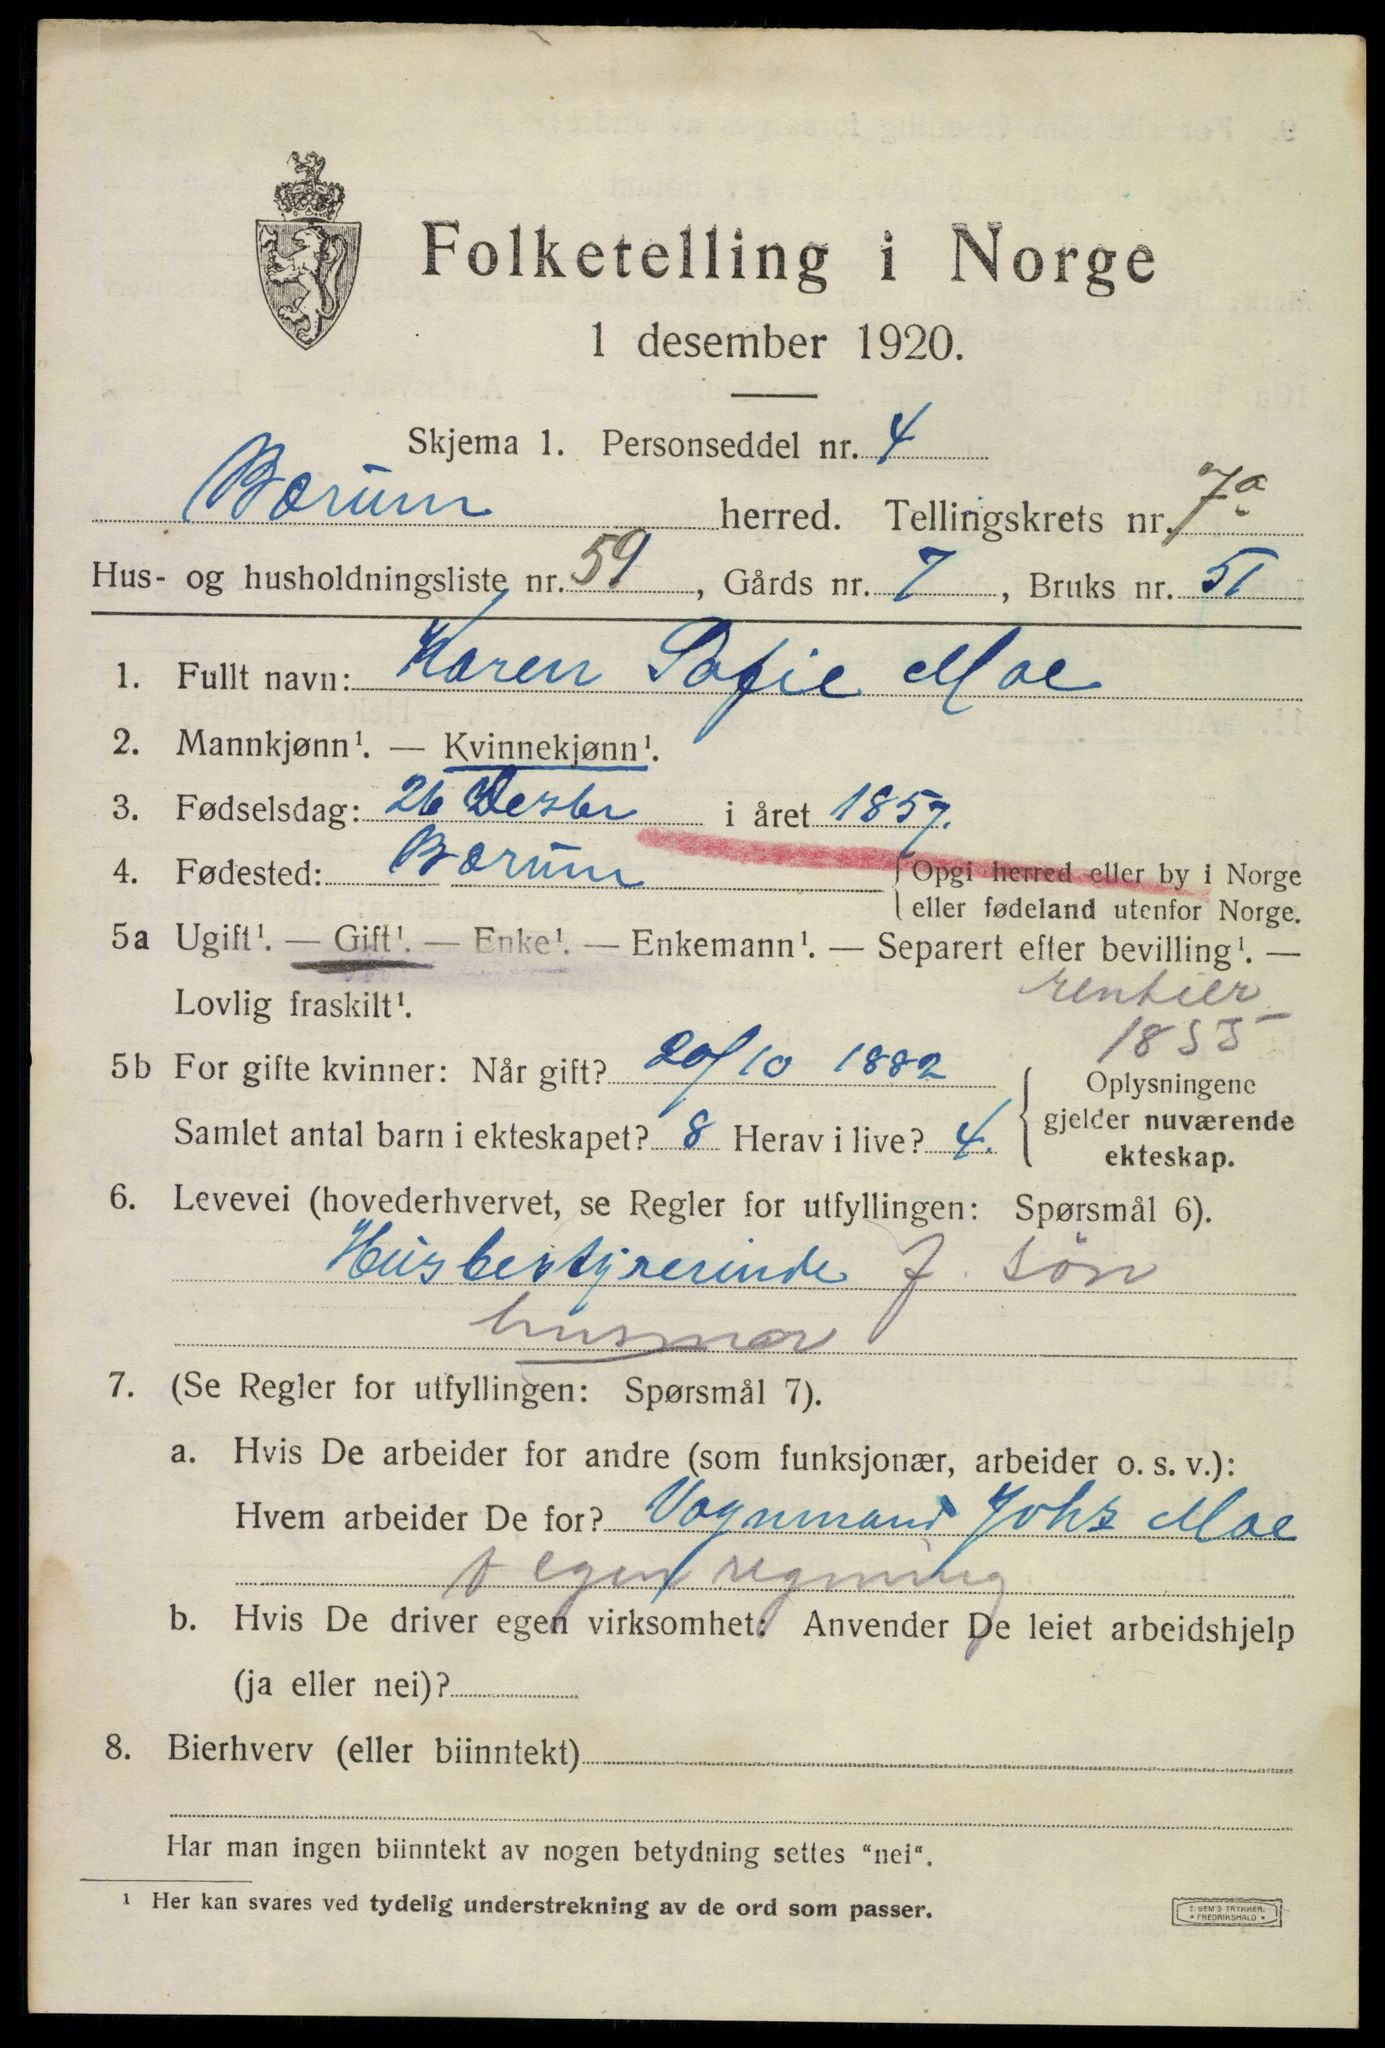 Folketelling i Norge
1 desember 1920.
Skjema 1. Personseddel nr. 4
Bærum herred. Tellingskrets nr. 7a
Hus- og husholdningsliste nr. 59, Gårds nr. 7, Bruks nr. 51
1. Fullt navn: Karen Sofie Moe
2. Mannkjønn¹. — Kvinnekjønn¹.
3. Fødselsdag: 26 Desbr i året 1857.
4. Fødested: Bærum { Opgi herred eller by i Norge
eller fødeland utenfor Norge.
5a Ugift¹. — Gift¹. — Enke¹. — Enkemann¹. — Separert efter bevilling¹. —
Lovlig fraskilt¹. rentier
1855
5b For gifte kvinner: Når gift? 20/10 1882
Samlet antal barn i ekteskapet? 8 Herav i live? 4.
{ Oplysningene
gjelder nuværende
ekteskap.
6. Levevei (hovederhvervet, se Regler for utfyllingen: Spørsmål 6).
Husbestyrerinde f. søn
husmor
7. (Se Regler for utfyllingen: Spørsmål 7).
a. Hvis De arbeider for andre (som funksjonær, arbeider o. s. v.):
Hvem arbeider De for? Vognmand Johs Moe
egen regning
b. Hvis De driver egen virksomhet: Anvender De leiet arbeidshjelp
(ja eller nei)?
8. Bierhverv (eller biinntekt)
Har man ingen biinntekt av nogen betydning settes "nei".
¹ Her kan svares ved tydelig understrekning av de ord som passer.
E. SEM'S TRYKKERI
• FREDRIKSHALD •